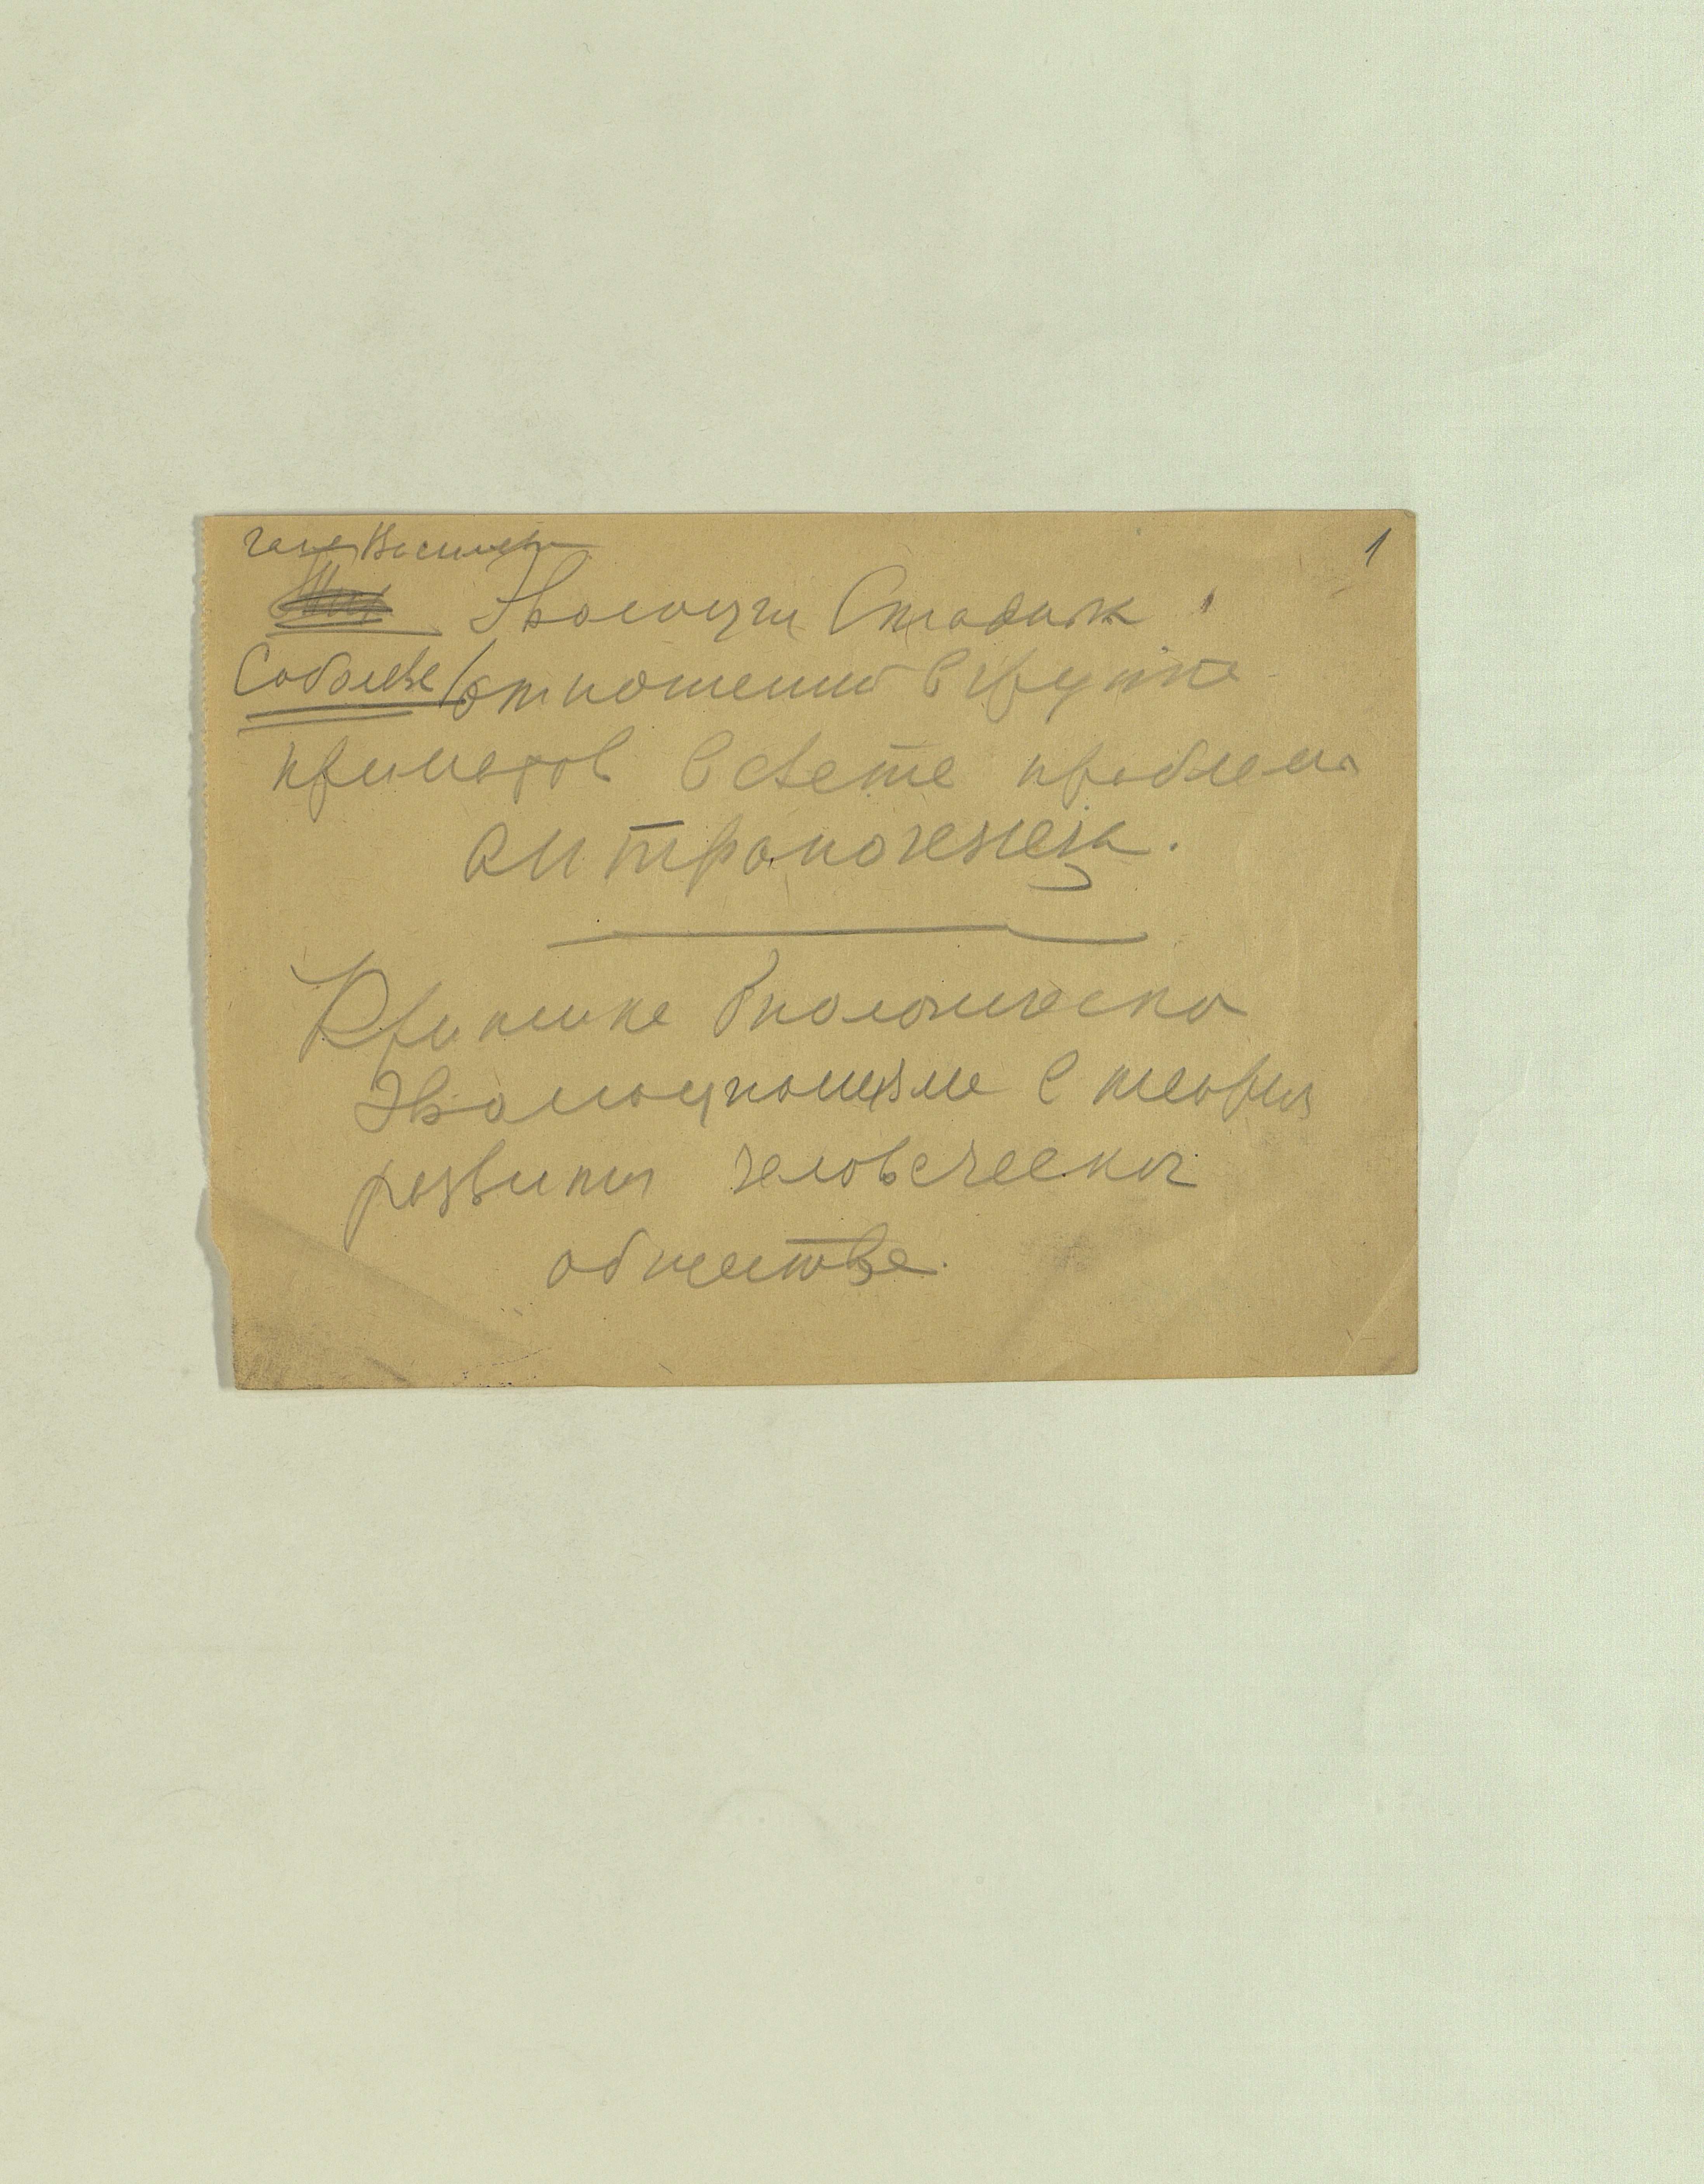 1
Эволюция Стадных
Соболев отношений в группе
приматов в свете проблемы
антропогенеза.
Критика биологического
эволюционизма в теории
развития человеческого
общества.